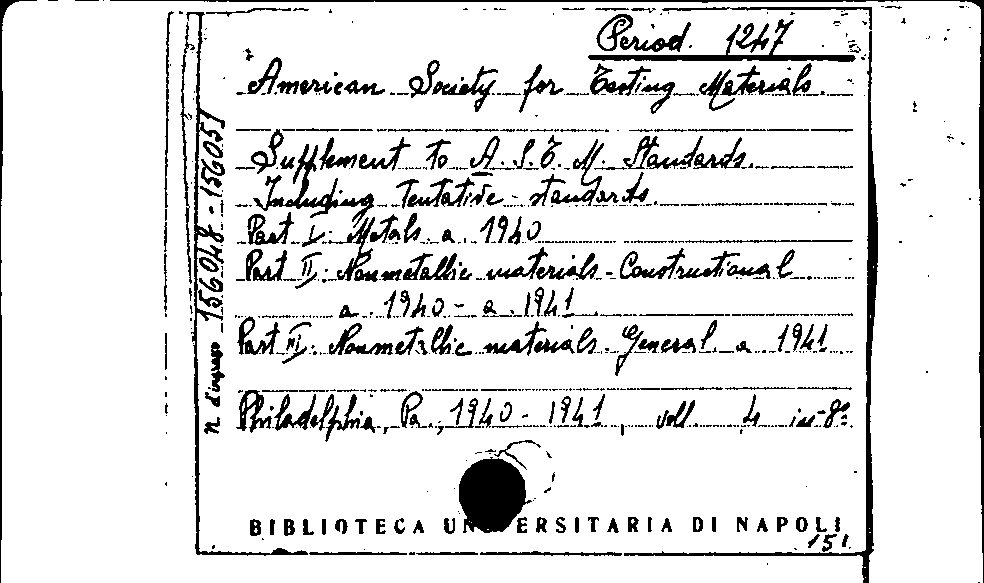 Period. 1247
American Society for Testing Materials.
Supplement to A. S. T. M. Standards.
Including tentative standards.
Part I: Metals. a. 1940
Part II: Nonmetallic materials - Constructional
a. 1940 - a. 1941
Part III: Nonmetallic materials - General. a 1941
Philadelphia, Pa., 1940 - 1941, voll. 4 in-8°
n. d'ingresso 156048 - 156051
BIBLIOTECA UNIVERSITARIA DI NAPOLI
151